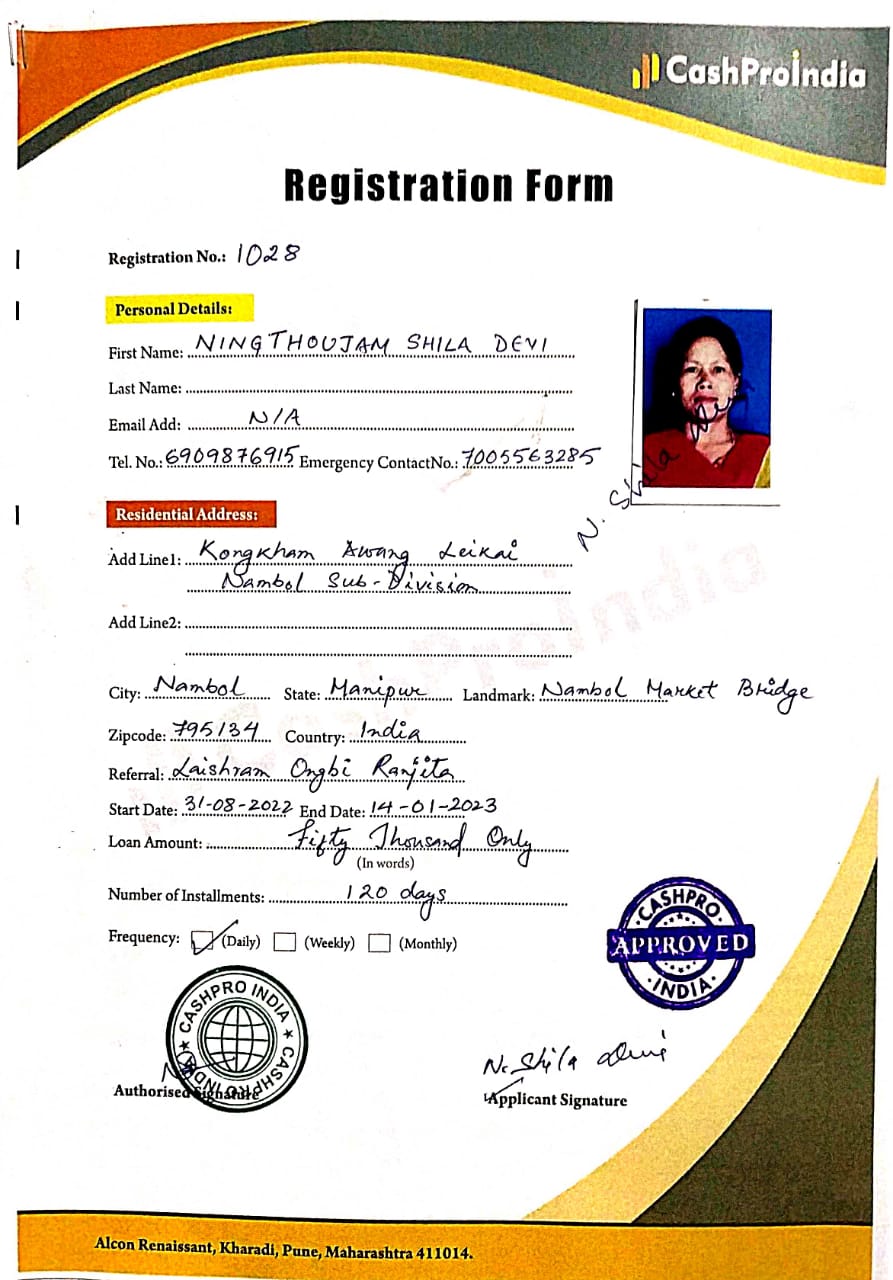 CashProIndia
Registration Form
Registration No.: 1028
Personal Details:
First Name: NINGTHOUJAM SHILA DEVI
Last Name:
Email Add: N/A
Tel. No.: 6909876915 Emergency ContactNo.: 7005563285
N. Shila Devi
Residential Address:
Add Line1: Kongkham Awang Leikai
Nambol Sub-Division
Add Line2:
City: Nambol State: Manipur Landmark: Nambol Market Bridge
Zipcode: 795134 Country: India
Referral: Laishram Ongbi Ranjita
Start Date: 31-08-2022 End Date: 14-01-2023
Loan Amount: Fifty Thousand Only
(In words)
Number of Installments: 120 days
Frequency: (Daily) (Weekly) (Monthly)
CASHPRO
APPROVED
INDIA
CASHPRO INDIA
CASHPRO INDIA
N. Shila Devi
Authorised Signature
Applicant Signature
Alcon Renaissant, Kharadi, Pune, Maharashtra 411014.